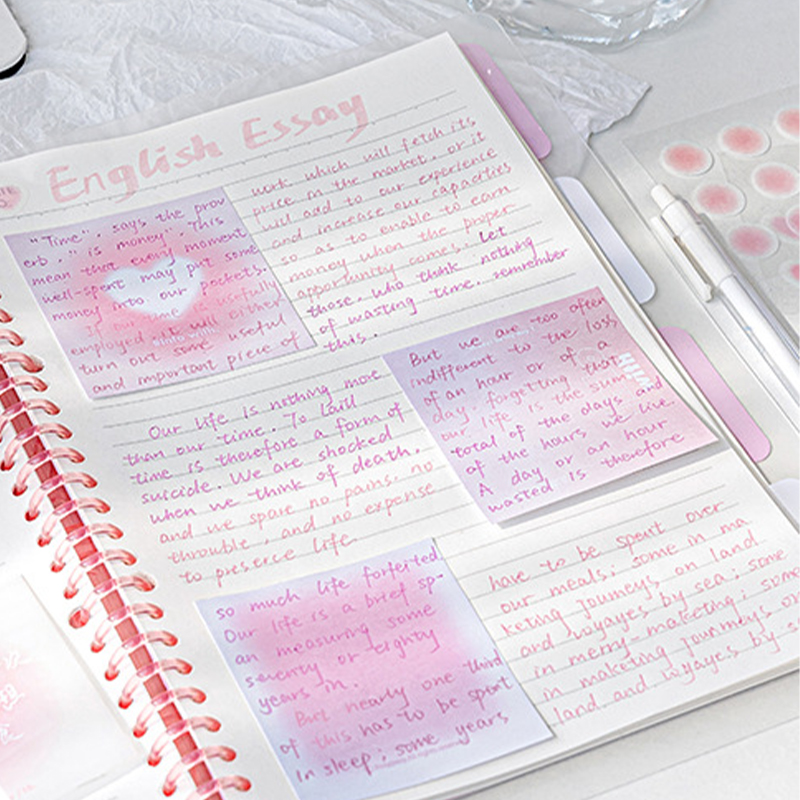 English Essay
"Time", says the prov
erb, "is money". This
mean that every moment
well-spent may put some
money into our pockets.
If our time is usefully
employed it will either
turn out some useful
and important piece of
work which will fetch its
price in the market, or it
will add to our experience
and increase our capacities
so as to enable to earn
money when the proper
opportunity comes. Let
those who think nothing
of wasting time, remember
this.
Our life is nothing more
than our time. To kill
time is therefore a form of
suicide. We are shocked
when we think of death,
and we spare no pains, no
throuble, and no expense
to preserce life.
But we are too after
indifferent to the loss
of an hour or of a
day, forgetting that
our life is the sum
total of the days and
of the hours we live.
A day or an hour
wasted is therefore
so much life forferted
Our life is a brief sp-
an measuring some
seventy or eighty
years in.
But nearly one third
of this has to be spent
in sleep; some years
have to be spent over
our meals; some in ma
keting journeys, on land
and voyayes by sea; some
in merry-maketing; some
in maketing journneys on
land and voyayes by s